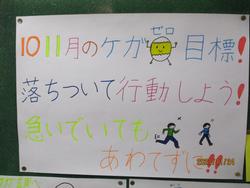 10 11月のケガゼロ目標!
落ちついて行動しよう!
急いでいても
あわてずに!!